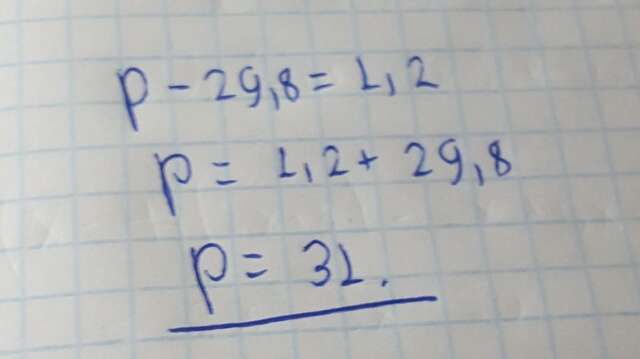 p - 29,8 = 1,2
p = 1,2 + 29,8
p = 31.